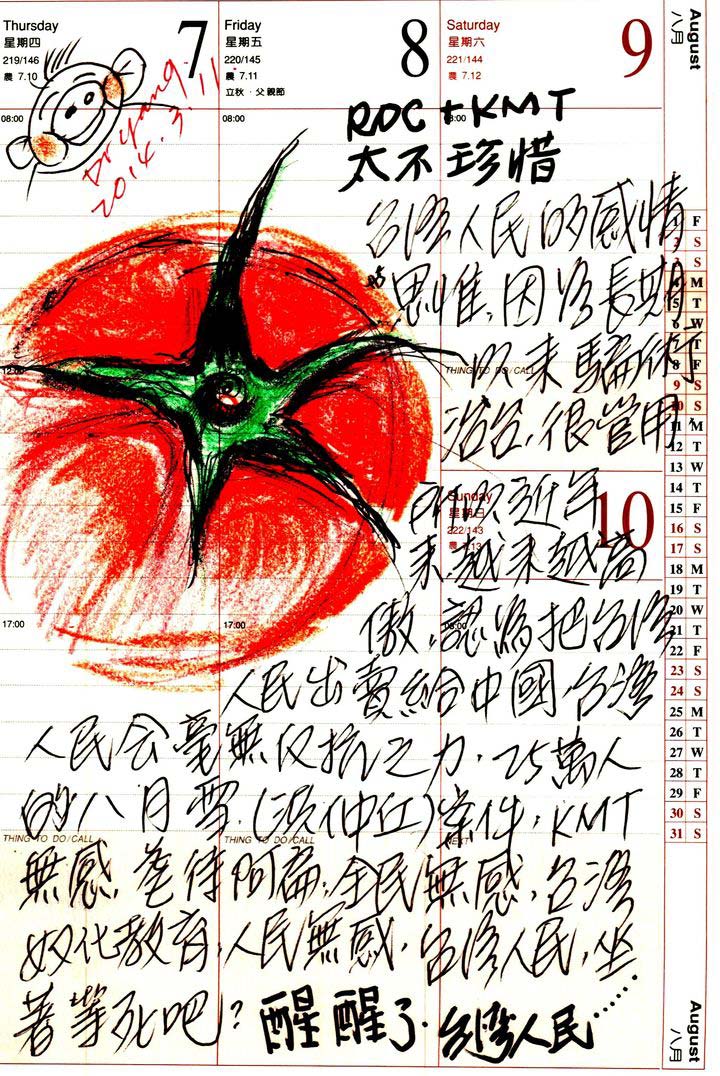 Thursday
星期四
219/146
農 7.10
7
Friday
星期五
220/145
農 7.11
立秋．父親節
8
Saturday
星期六
221/144
農 7.12
9
August
八月
Dr Yang.
2014.3.11
08:00
08:00
08:00
ROC + KMT
太不珍惜
台灣人民的感情
思惟,因為長期
以來騙術
治台,很管用,
12:00
THING TO DO/CALL
Sunday
星期日
222/143
農 7.13
10
所以近年
來越來越高
傲,認為把台灣
人民出賣給中國,台灣
人民会毫無反抗之力.25萬人
的八月雪.(洪仲丘)案件,KMT
無感,虐待阿扁,全民無感,台灣
奴化教育,人民無感.台灣人民,坐
著等死吧?醒醒了.台灣人民......
17:00
17:00
08:00
THING TO DO/CALL
THING TO DO/CALL
NEXT
F
2 S
3 S
4 M
5 T
6 W
7 T
8 F
9 S
10 S
11 M
12 T
13 W
14 T
15 F
16 S
17 S
18 M
19 T
20 W
21 T
22 F
23 S
24 S
25 M
26 T
27 W
28 T
29 F
30 S
31 S
August
八月